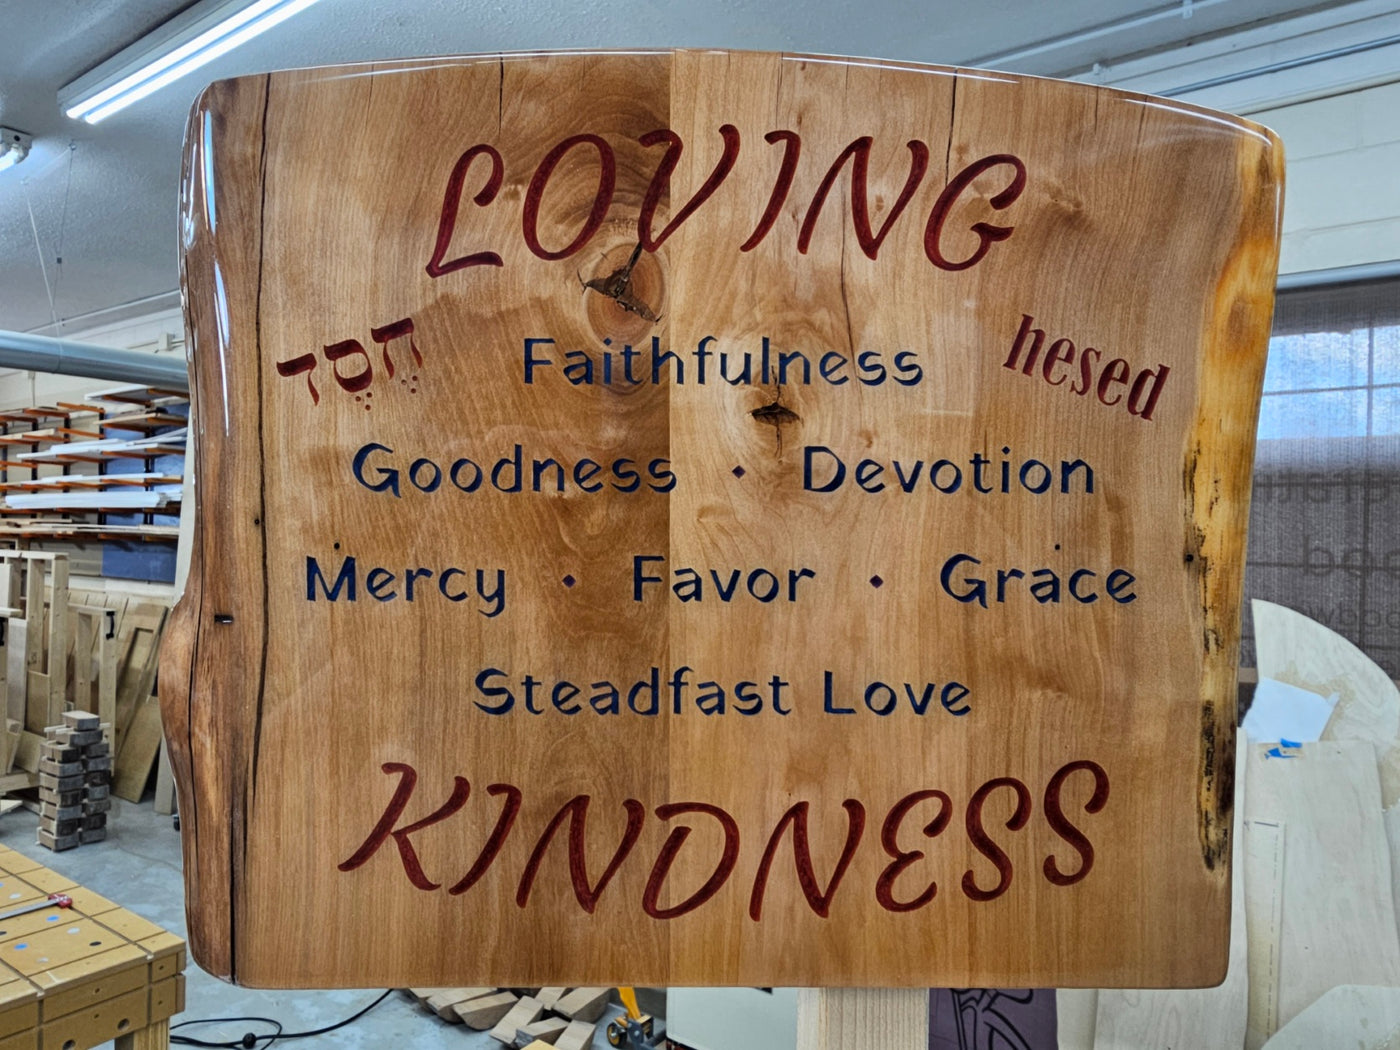 LOVING
חֶסֶד
Faithfulness
hesed
Goodness • Devotion
Mercy • Favor • Grace
Steadfast Love
KINDNESS